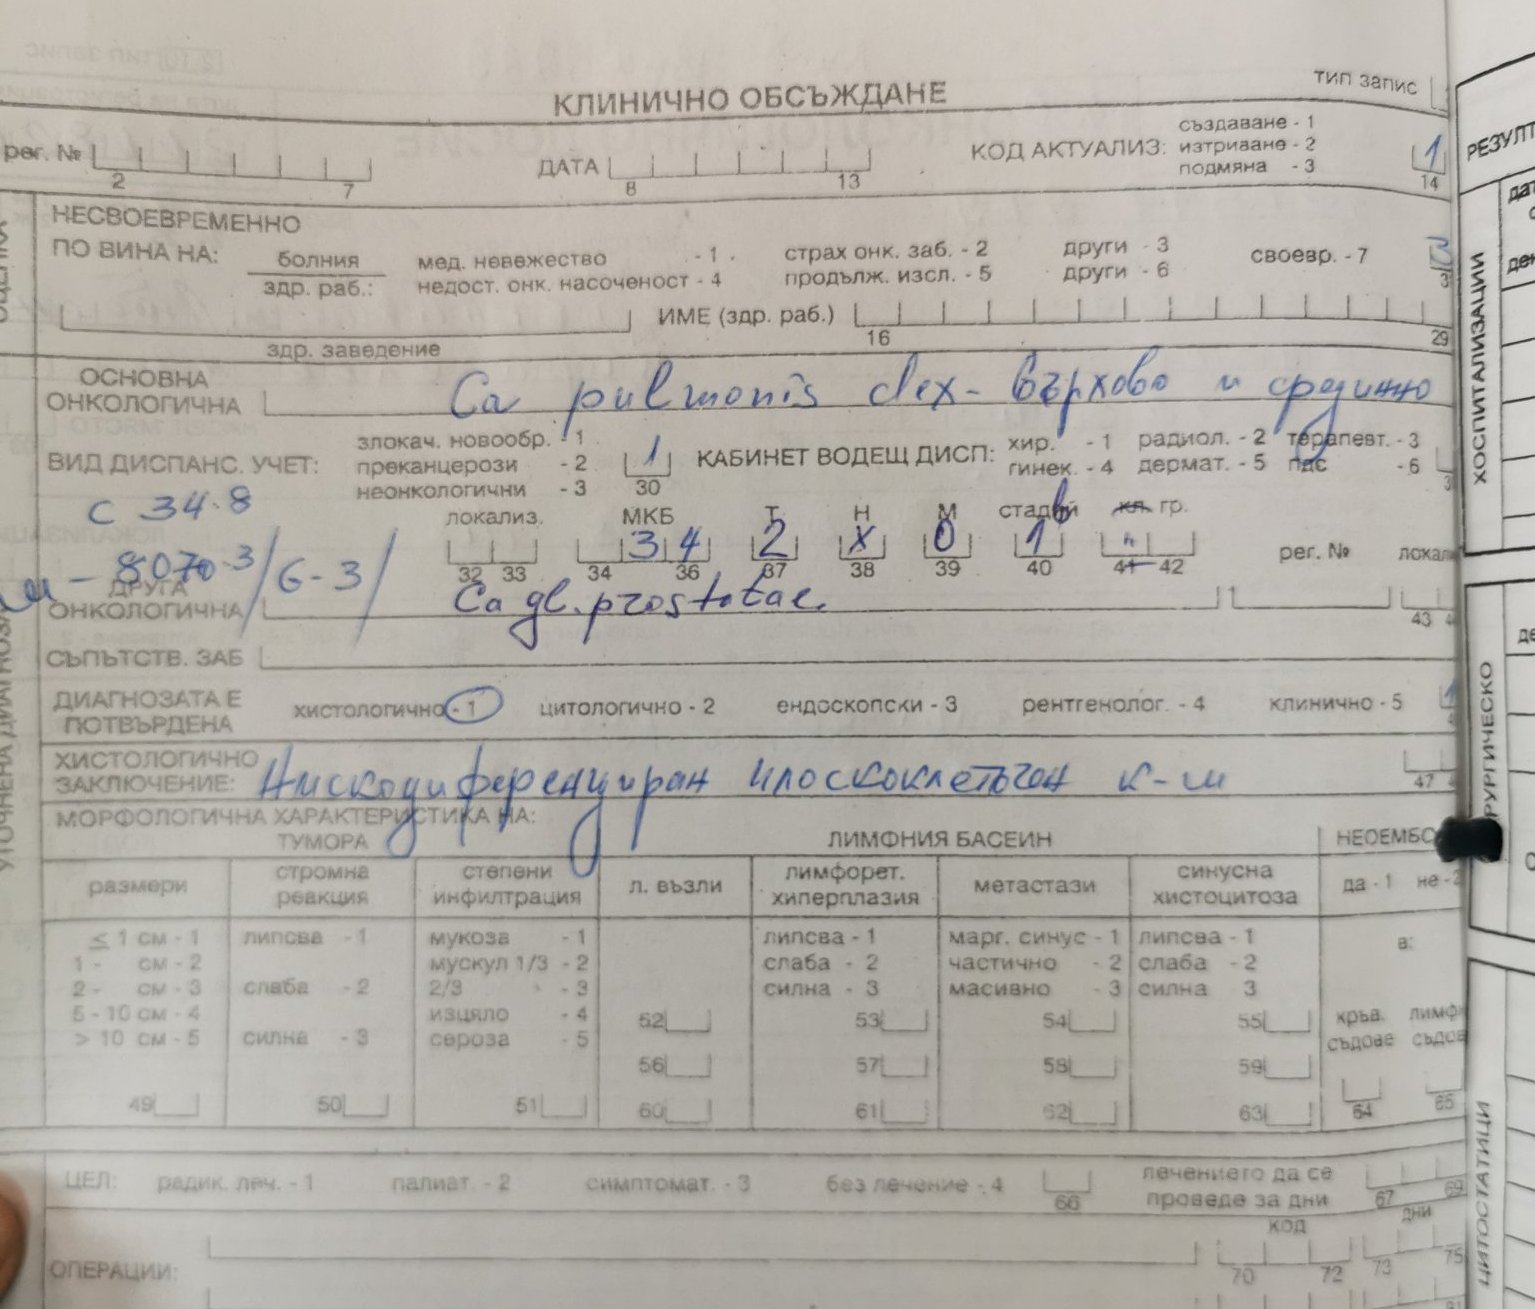 КЛИНИЧНО ОБСЪЖДАНЕ
тип запис
рег. №
2 7
ДАТА
8 13
КОД АКТУАЛИЗ:
създаване - 1
изтриване - 2
подмяна - 3
1
14
НЕСВОЕВРЕМЕННО
ПО ВИНА НА:
болния
здр. раб.:
мед. невежество - 1
недост. онк. насоченост - 4
страх онк. заб. - 2
продълж. изсл. - 5
други - 3
други - 6
своевр. - 7
здр. заведение
ИМЕ (здр. раб.)
16 29
ОСНОВНА
ОНКОЛОГИЧНА
Ca pulmonis dex - върхово и средищно
ВИД ДИСПАНС. УЧЕТ:
злокач. новообр. - 1
преканцерози - 2
неонкологични - 3
1
30
КАБИНЕТ ВОДЕЩ ДИСП:
хир. - 1 радиол. - 2 терапевт. - 3
гинек. - 4 дермат. - 5 пдс - 6
C 34.8
локализ. МКБ Т Н М стадий кл. гр.
34 2 x 0 1 b
32 33 34 36 37 38 39 40 41 42
рег. № локали
43
м - 8070.3/G-3/
ДРУГА
ОНКОЛОГИЧНА
Ca gl. prostatae.
СЪПЪТСТВ. ЗАБ
ДИАГНОЗАТА Е
ПОТВЪРДЕНА
хистологично - 1 цитологично - 2 ендоскопски - 3 рентгенолог. - 4 клинично - 5
1
ХИСТОЛОГИЧНО
ЗАКЛЮЧЕНИЕ:
Нискодиференциран плоскоклетъчен к-м
47
МОРФОЛОГИЧНА ХАРАКТЕРИСТИКА НА:
ТУМОРА
ЛИМФНИЯ БАСЕИН
НЕОЕМБО
размери
стромна
реакция
степени
инфилтрация
л. възли
лимфорет.
хиперплазия
метастази
синусна
хистоцитоза
да - 1 не - 2
≤ 1 см - 1
1 - см - 2
2 - см - 3
5 - 10 см - 4
> 10 см - 5
49
липсва - 1
слаба - 2
силна - 3
50
мукоза - 1
мускул 1/3 - 2
2/3 - 3
изцяло - 4
сероза - 5
51
52
56
60
липсва - 1
слаба - 2
силна - 3
53
57
61
марг. синус - 1
частично - 2
масивно - 3
54
58
62
липсва - 1
слаба - 2
силна 3
55
59
63
в:
кръв. лимф
съдове съдо
64 65
ЦЕЛ: радик. леч. - 1 палиат. - 2 симптомат. - 3 без лечение - 4
66
лечението да се
проведе за дни
67 69
дни
код
ОПЕРАЦИИ:
70 72 73 75
УТОЧНЕНА ДИАГНОЗА
РЕЗУЛТ
ХОСПИТАЛИЗАЦИИ
ХИРУРГИЧЕСКО
ЦИТОСТАТИЦИ